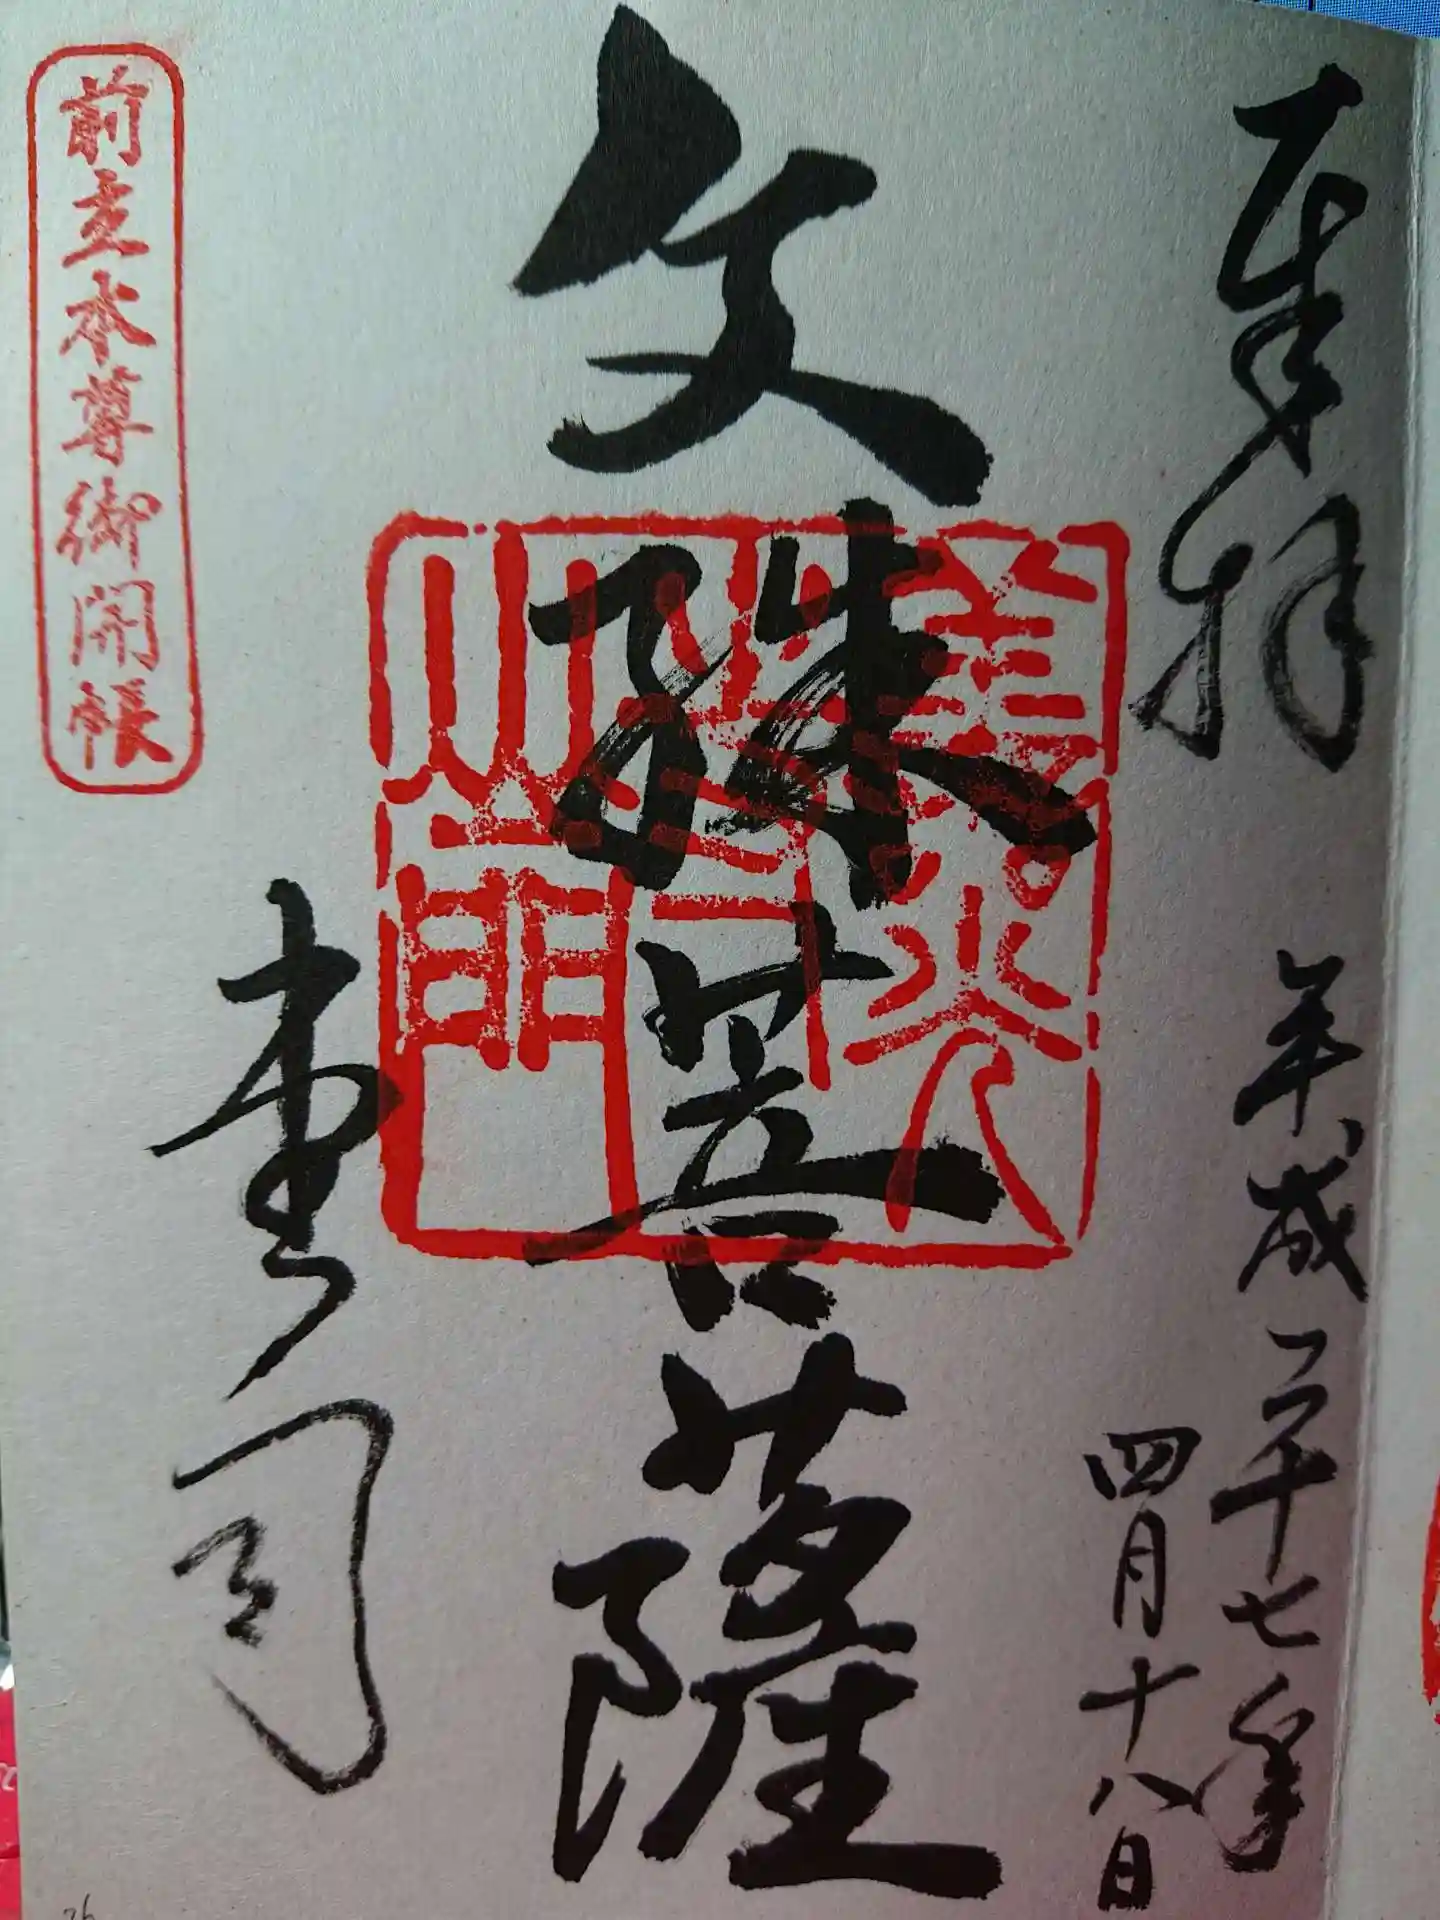 奉拝
平成二十七年
四月十八日
文殊菩薩
堂司
前立本尊御開帳